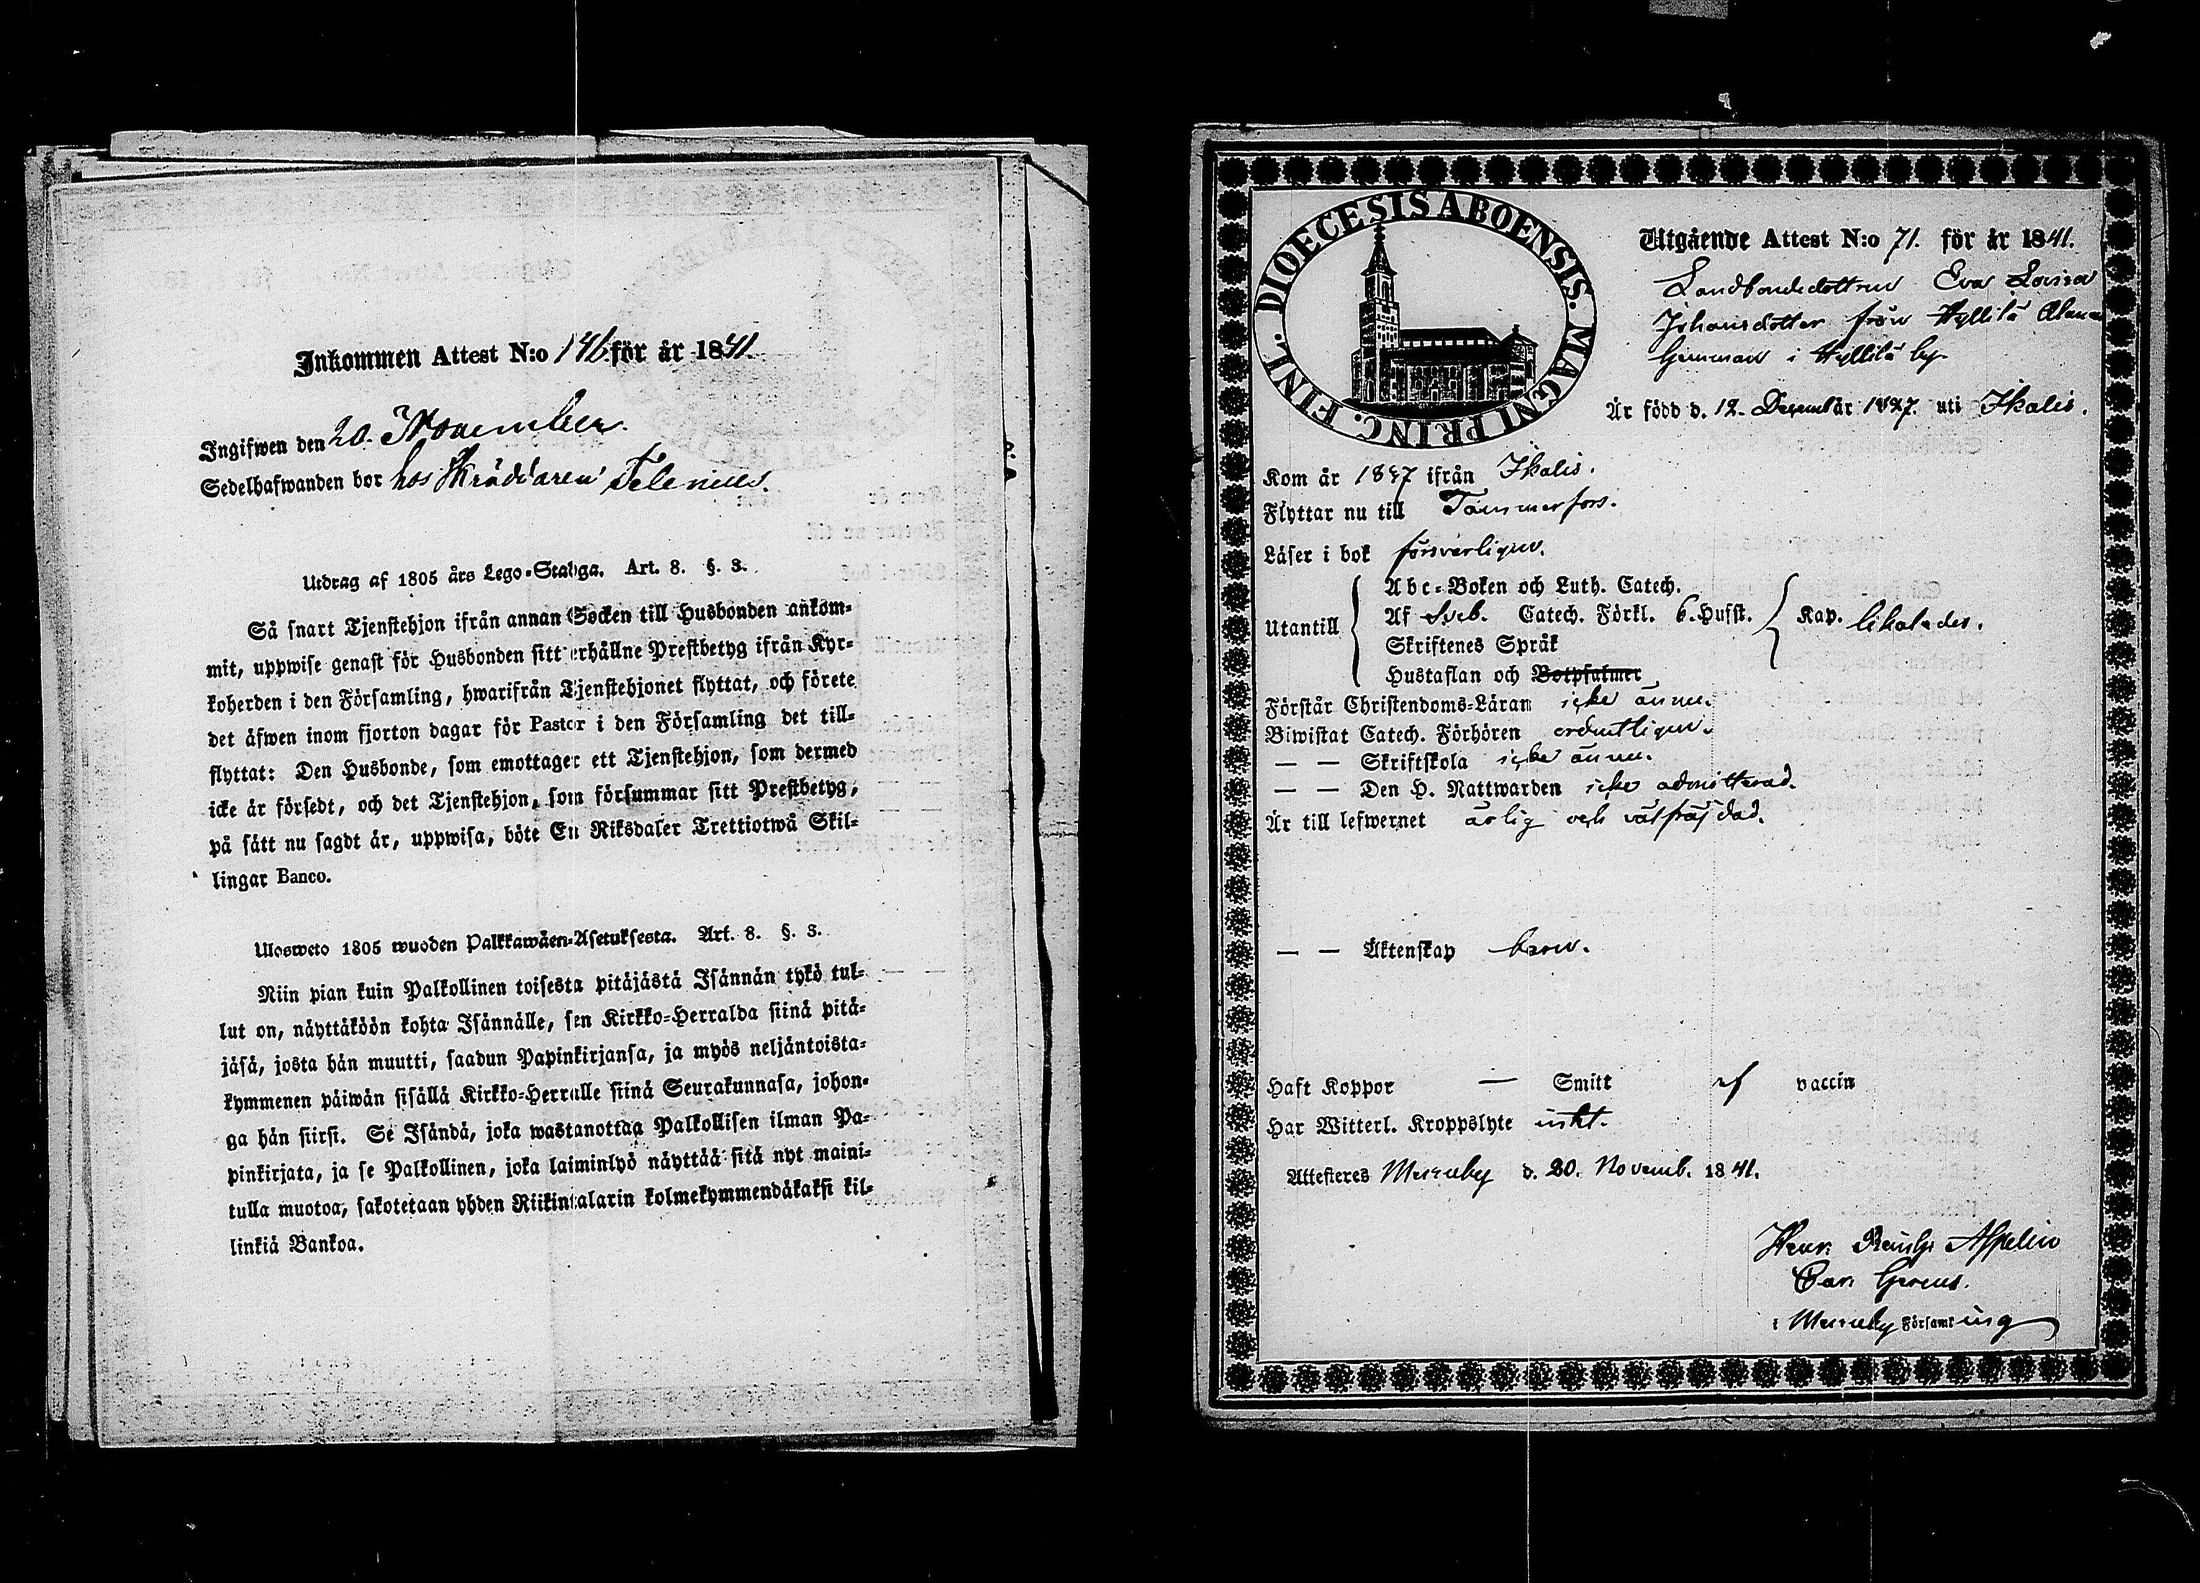 Inkommen Attest N:o 146. för år 1841.
Ingifwen den 20. November.
Sedelhafwanden bor hos Skräddaren Selenius.
Utdrag af 1805 års Lego-Stadga. Art. 8. §. 3.
Så snart Tjenstehjon ifrån annan Socken till Husbonden ankom-
mit, uppwise genast för Husbonden sitt erhållne Prestbetyg ifrån Kyr-
koherden i den Församling, hwarifrån Tjenstehjonet flyttat, och förete
det äfwen inom fjorton dagar för Pastor i den Församling det till-
flyttat: Den Husbonde, som emottager ett Tjenstehjon, som dermed
icke är försedt, och det Tjenstehjon, som försummar sitt Prestbetyg,
på sätt nu sagdt är, uppwisa, böte En Riksdaler Trettiotwå Skil-
lingar Banco.
Ulosweto 1805 wuoden Palkkawäen-Asetuksesta. Art. 8. §. 3.
Niin pian kuin Palkollinen toisesta pitäjästä Isännän tykö tul-
lut on, näyttäköön kohta Isännälle, sen Kirkko-Herralda siinä pitä-
jäsä, josta hän muutti, saadun Papinkirjansa, ja myös neljäntoista-
kymmenen päiwän sisällä Kirkko-Herralle siinä Seurakunnasa, johon-
ga hän siirsi. Se Isändä, joka wastanottaa Palkollisen ilman Pa-
pinkirjata, ja se Palkollinen, joka laiminlyö näyttää sitä nyt maini-
tulla muotoa, sakotetaan yhden Riikintalarin kolmekymmendäkaksi kil-
linkiä Bankoa.
DIOECESIS ABOENSIS. MAGNI PRINC. FINL.
Utgående Attest N:o 71. för år 1841.
Landbondedottren Eva Lovisa
Johansdotter från Hyllilä
i Hyllilä by
Är född d. 12. Decembr år 1827. uti Ikalis.
Kom år 1837 ifrån Ikalis.
Flyttar nu till Tammerfors.
Läser i bok försvarligen.
Abc-Boken och Luth. Catech.
Utantill Af Sveb. Catech. Förkl. 6. Hufst. Kap. likaledes.
Skriftenes Språk
Hustaflan och Botpsalmer
Förstår Christendoms-Läran icke ännu.
Biwistat Catech. Förhören ordentligen.
— — Skriftskola icke ännu.
— — Den H. Nattwarden icke admitterad.
Är till lefwernet ärlig och välfräjdad.
— — Äktenskap barn.
Haft Koppor — Smitt af vaccin
Har Witterl. Kroppslyte intet.
Attesteres Messuby d. 20. Novemb. 1841.
Henr. Aspelin
i Messuby Församling